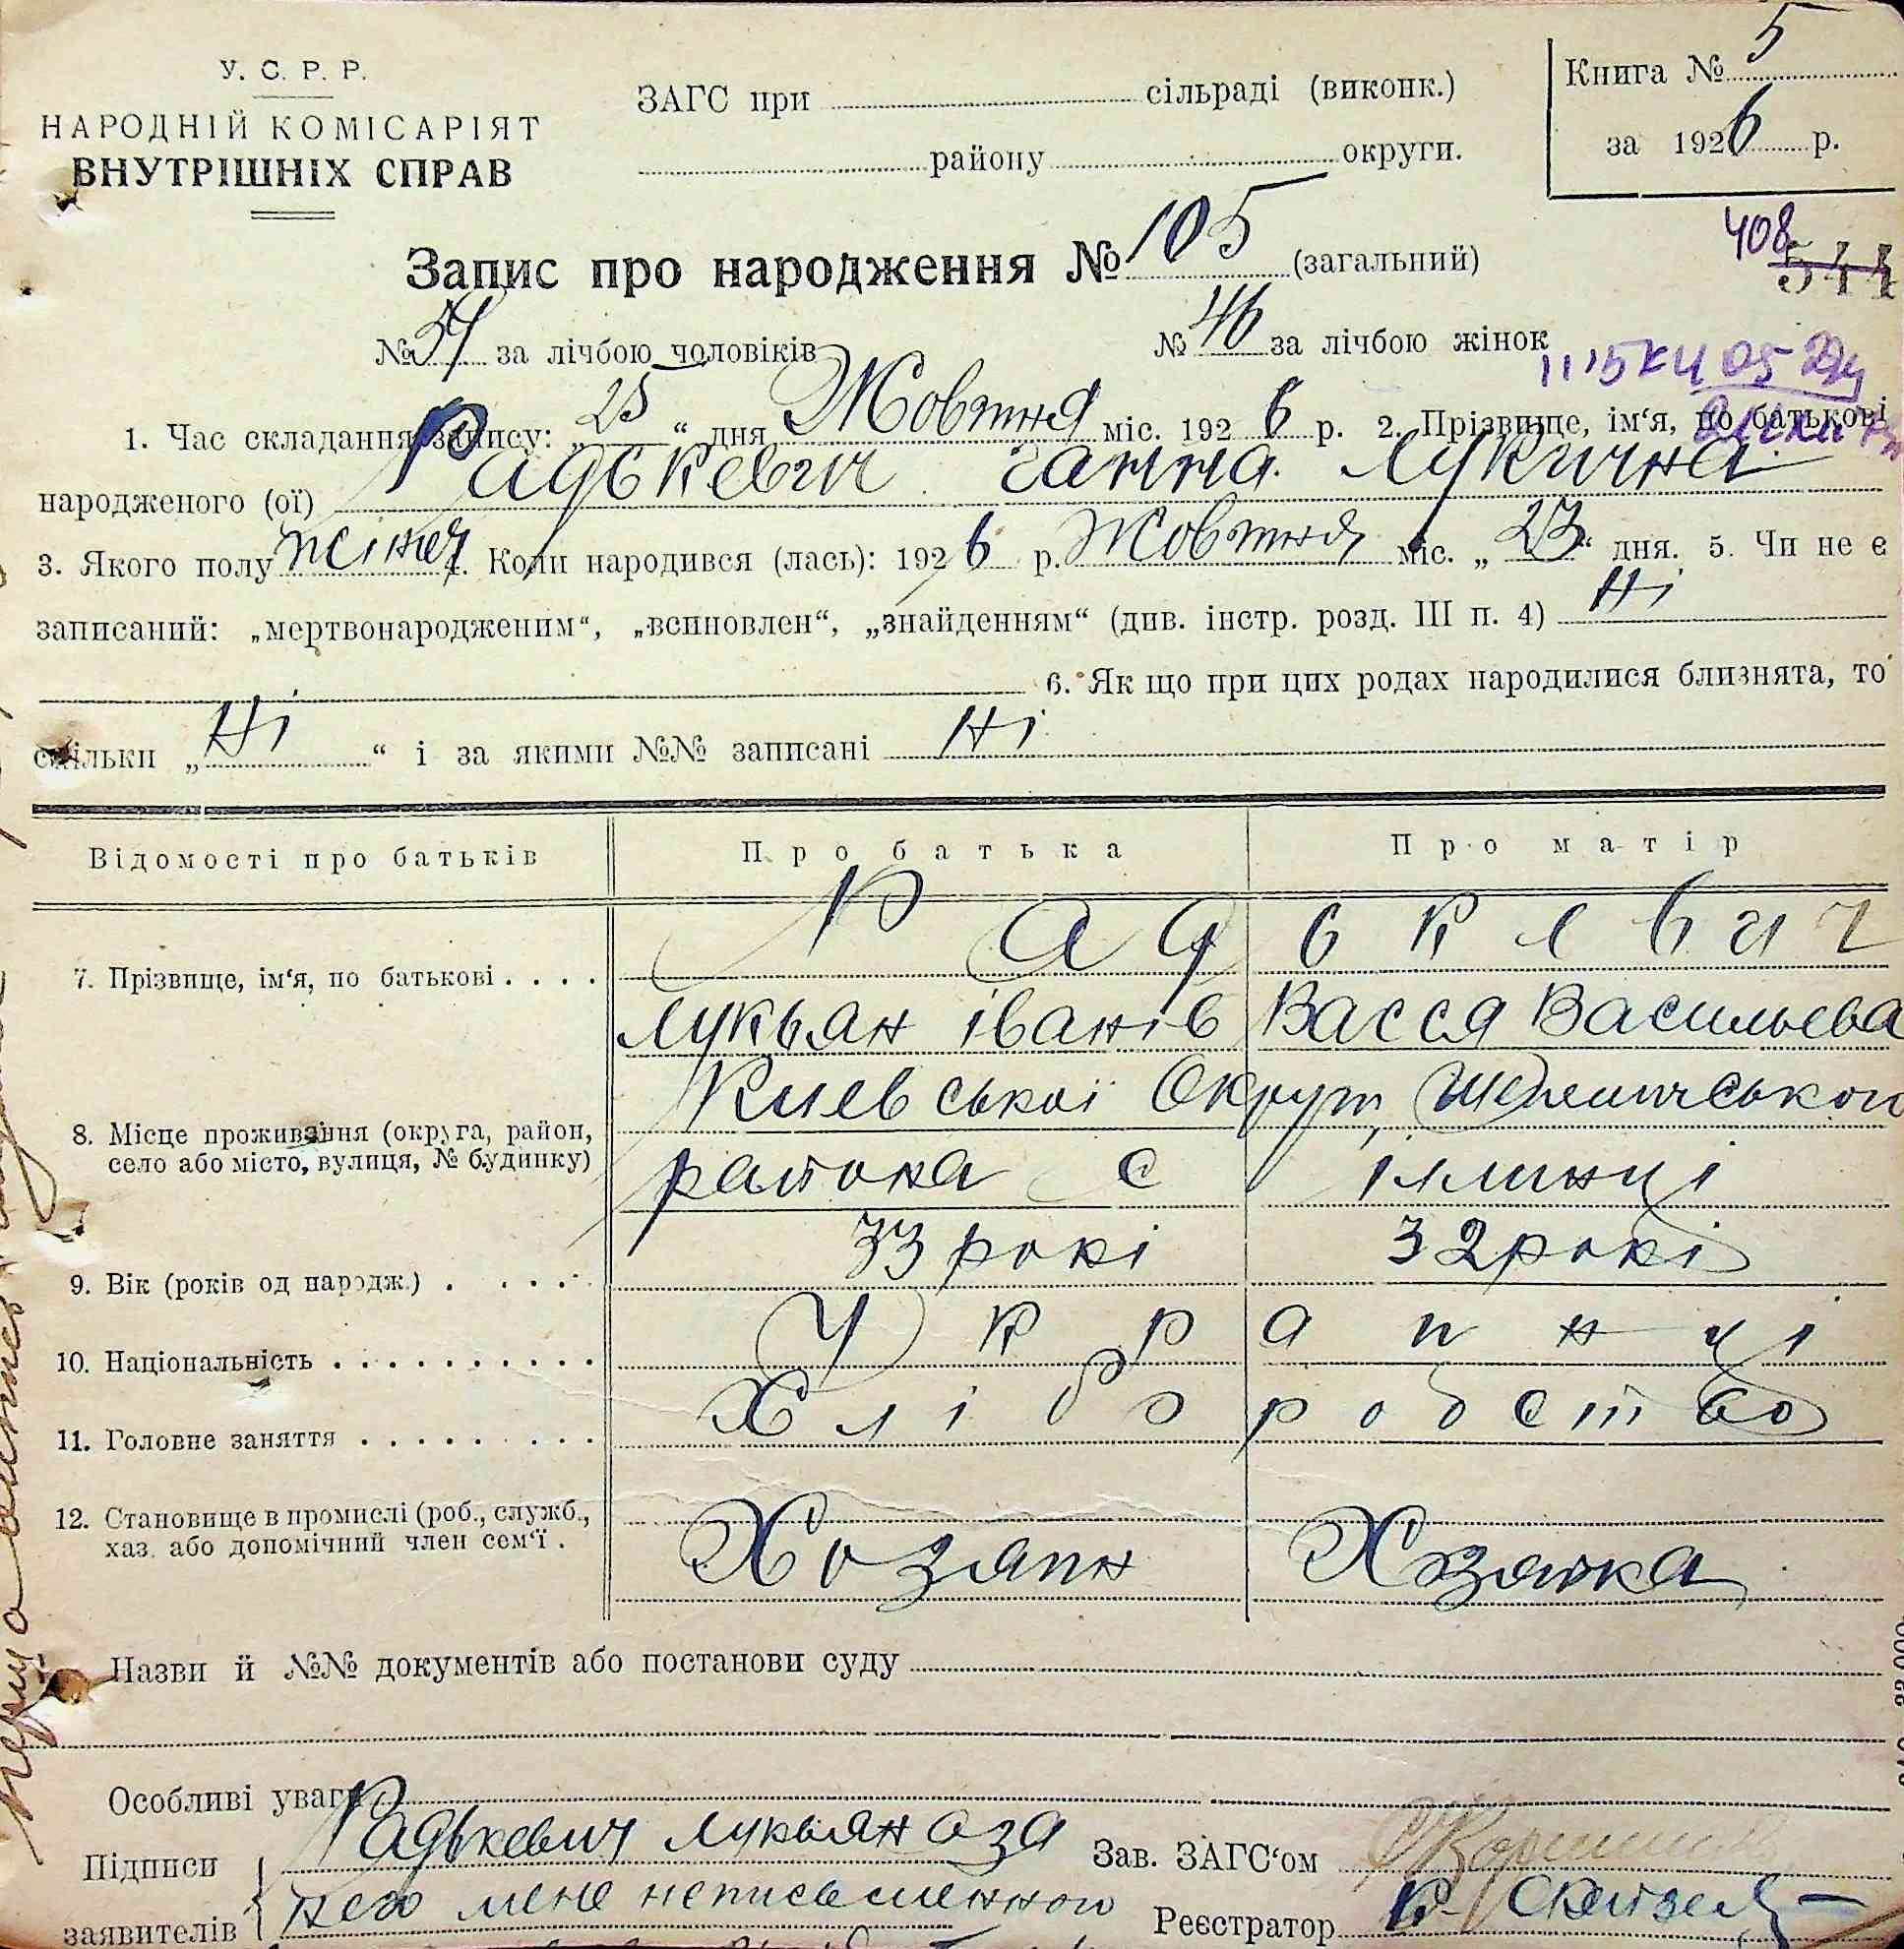 У. С. Р. Р.
НАРОДНІЙ КОМІСАРІЯТ
ВНУТРІШНІХ СПРАВ
ЗАГС при сільраді (виконк.)
району округи.
Книга № 5
за 1926 р.
Запис про народження № 105 (загальний)
408
544
№ за лічбою чоловіків № 46 за лічбою жінок
1. Час складання запису: „25“ дня Жовтня міс. 1926 р. 2. Прізвище, ім‘я, по батькові
народженого (ої) Радькевич Ганна Лукична
3. Якого полу жіноч 4. Коли народився (лась): 1926 р. Жовтня міс. „23“ дня. 5. Чи не є
записаний: „мертвонародженим“, „всиновлен“, „знайденням“ (див. інстр. розд. III п. 4) Ні
6. Як що при цих родах народилися близнята, то
скільки „Ні“ і за якими №№ записані Ні
Відомості про батьків Про батька Про матір
7. Прізвище, ім‘я, по батькові . . . . Радькевич
Лукьян Іванів Васся Васильева
8. Місце проживання (округа, район, село або місто, вулиця, № будинку) Киевської Округи
района с Іллинці
9. Вік (років од народж.) . . . . . 33 рокі 32 рокі
10. Національність . . . . . . . . . . Украинці
11. Головне заняття . . . . . . . . . Хліборобство
12. Становище в промислі (роб., служб.,
хаз. або допомічний член сем‘ї . Хозяин Хозяйка
Назви й №№ документів або постанови суду
Особливі уваги
Підписи Радькевич Лукьян а за Зав. ЗАГС‘ом
заявителів него мене неписьменного Реєстратор